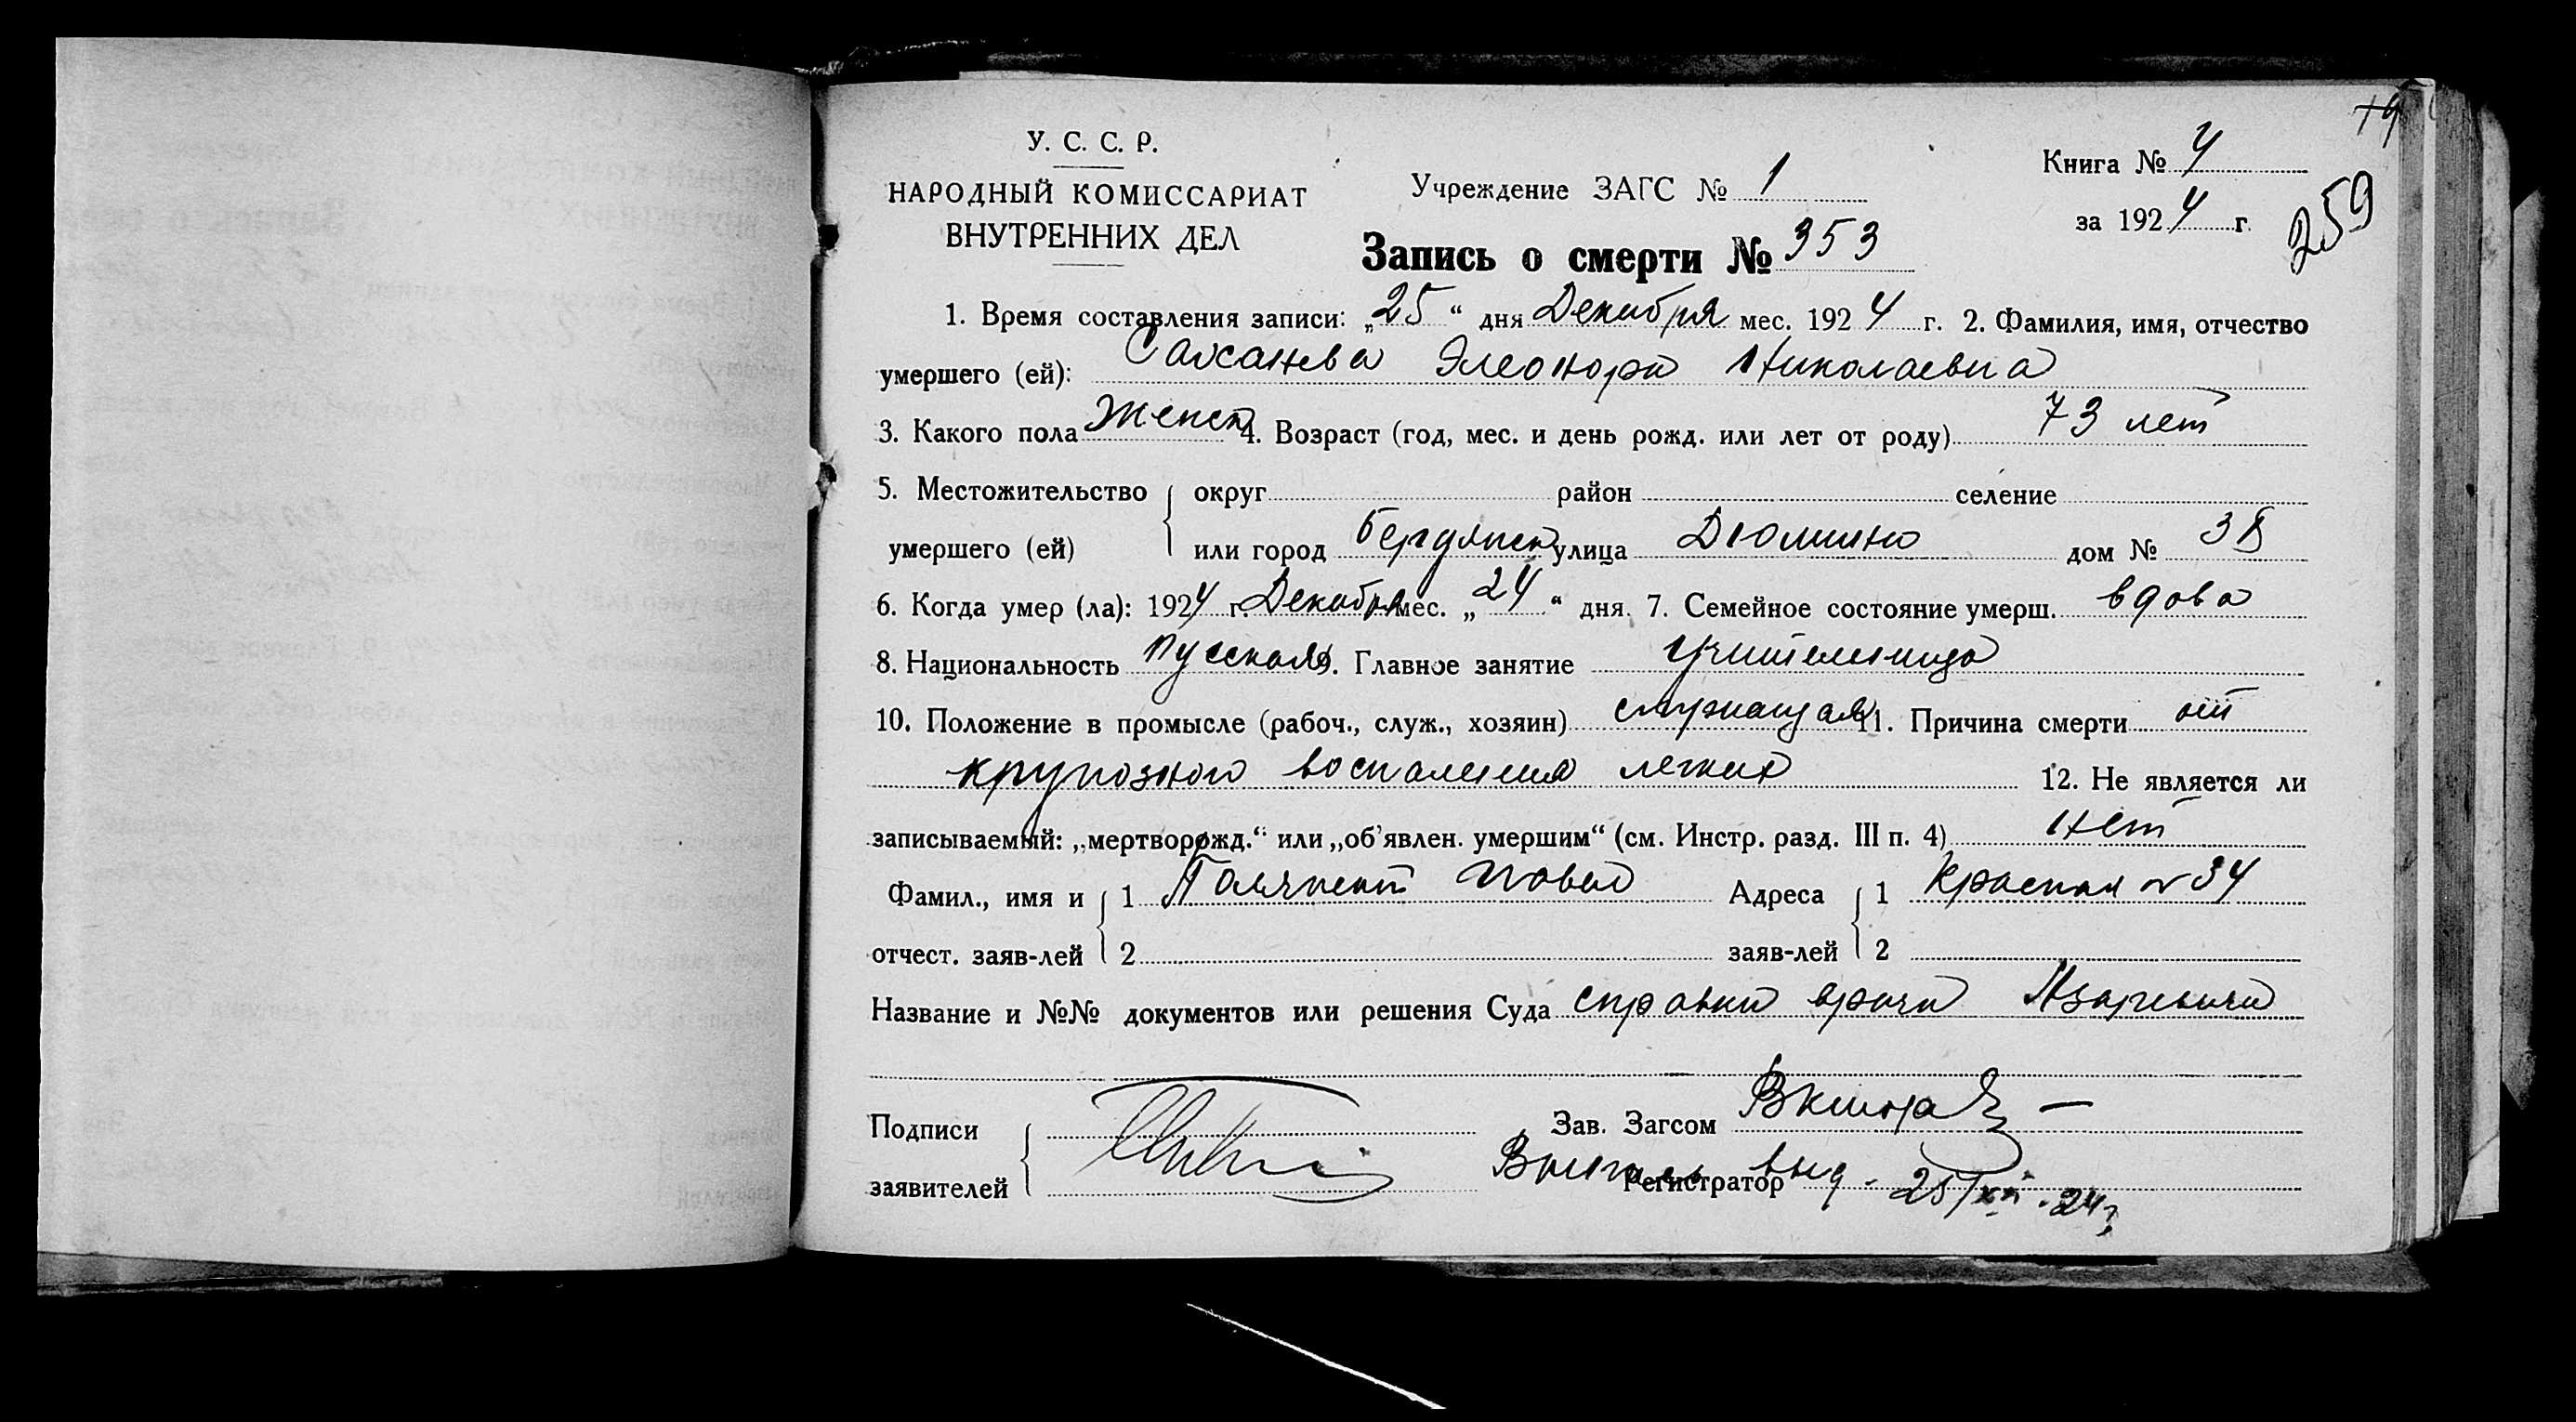 У. С. С. Р.
НАРОДНЫЙ КОМИССАРИАТ
ВНУТРЕННИХ ДЕЛ
Учреждение ЗАГС № 1
Книга № 4
за 1924 г.
259
Запись о смерти № 353
1. Время составления записи: „25“ дня Декабря мес. 1924 г. 2. Фамилия, имя, отчество
умершего (ей): Элеонора Николаевна
3. Какого пола Женск 4. Возраст (год, мес. и день рожд. или лет от роду) 73 лет
5. Местожительство округ район селение
умершего (ей) или город Бердянск улица Дюмина дом №
6. Когда умер (ла): 1924 г. Декабря мес. „24“ дня. 7. Семейное состояние умерш. вдова
8. Национальность русская 9. Главное занятие учительница
10. Положение в промысле (рабоч., служ., хозяин) служащая 11. Причина смерти от
крупозного воспаления легких 12. Не является ли
записываемый: „мертворожд.“ или „об’явлен. умершим“ (см. Инстр. разд. III п. 4) Нет
Фамил., имя и 1 Адреса 1 Красная № 34
отчест. заяв-лей 2 заяв-лей 2
Название и №№ документов или решения Суда справка врача
Подписи Зав. Загсом
заявителей Регистратор
выд. 25/XII-24 г.